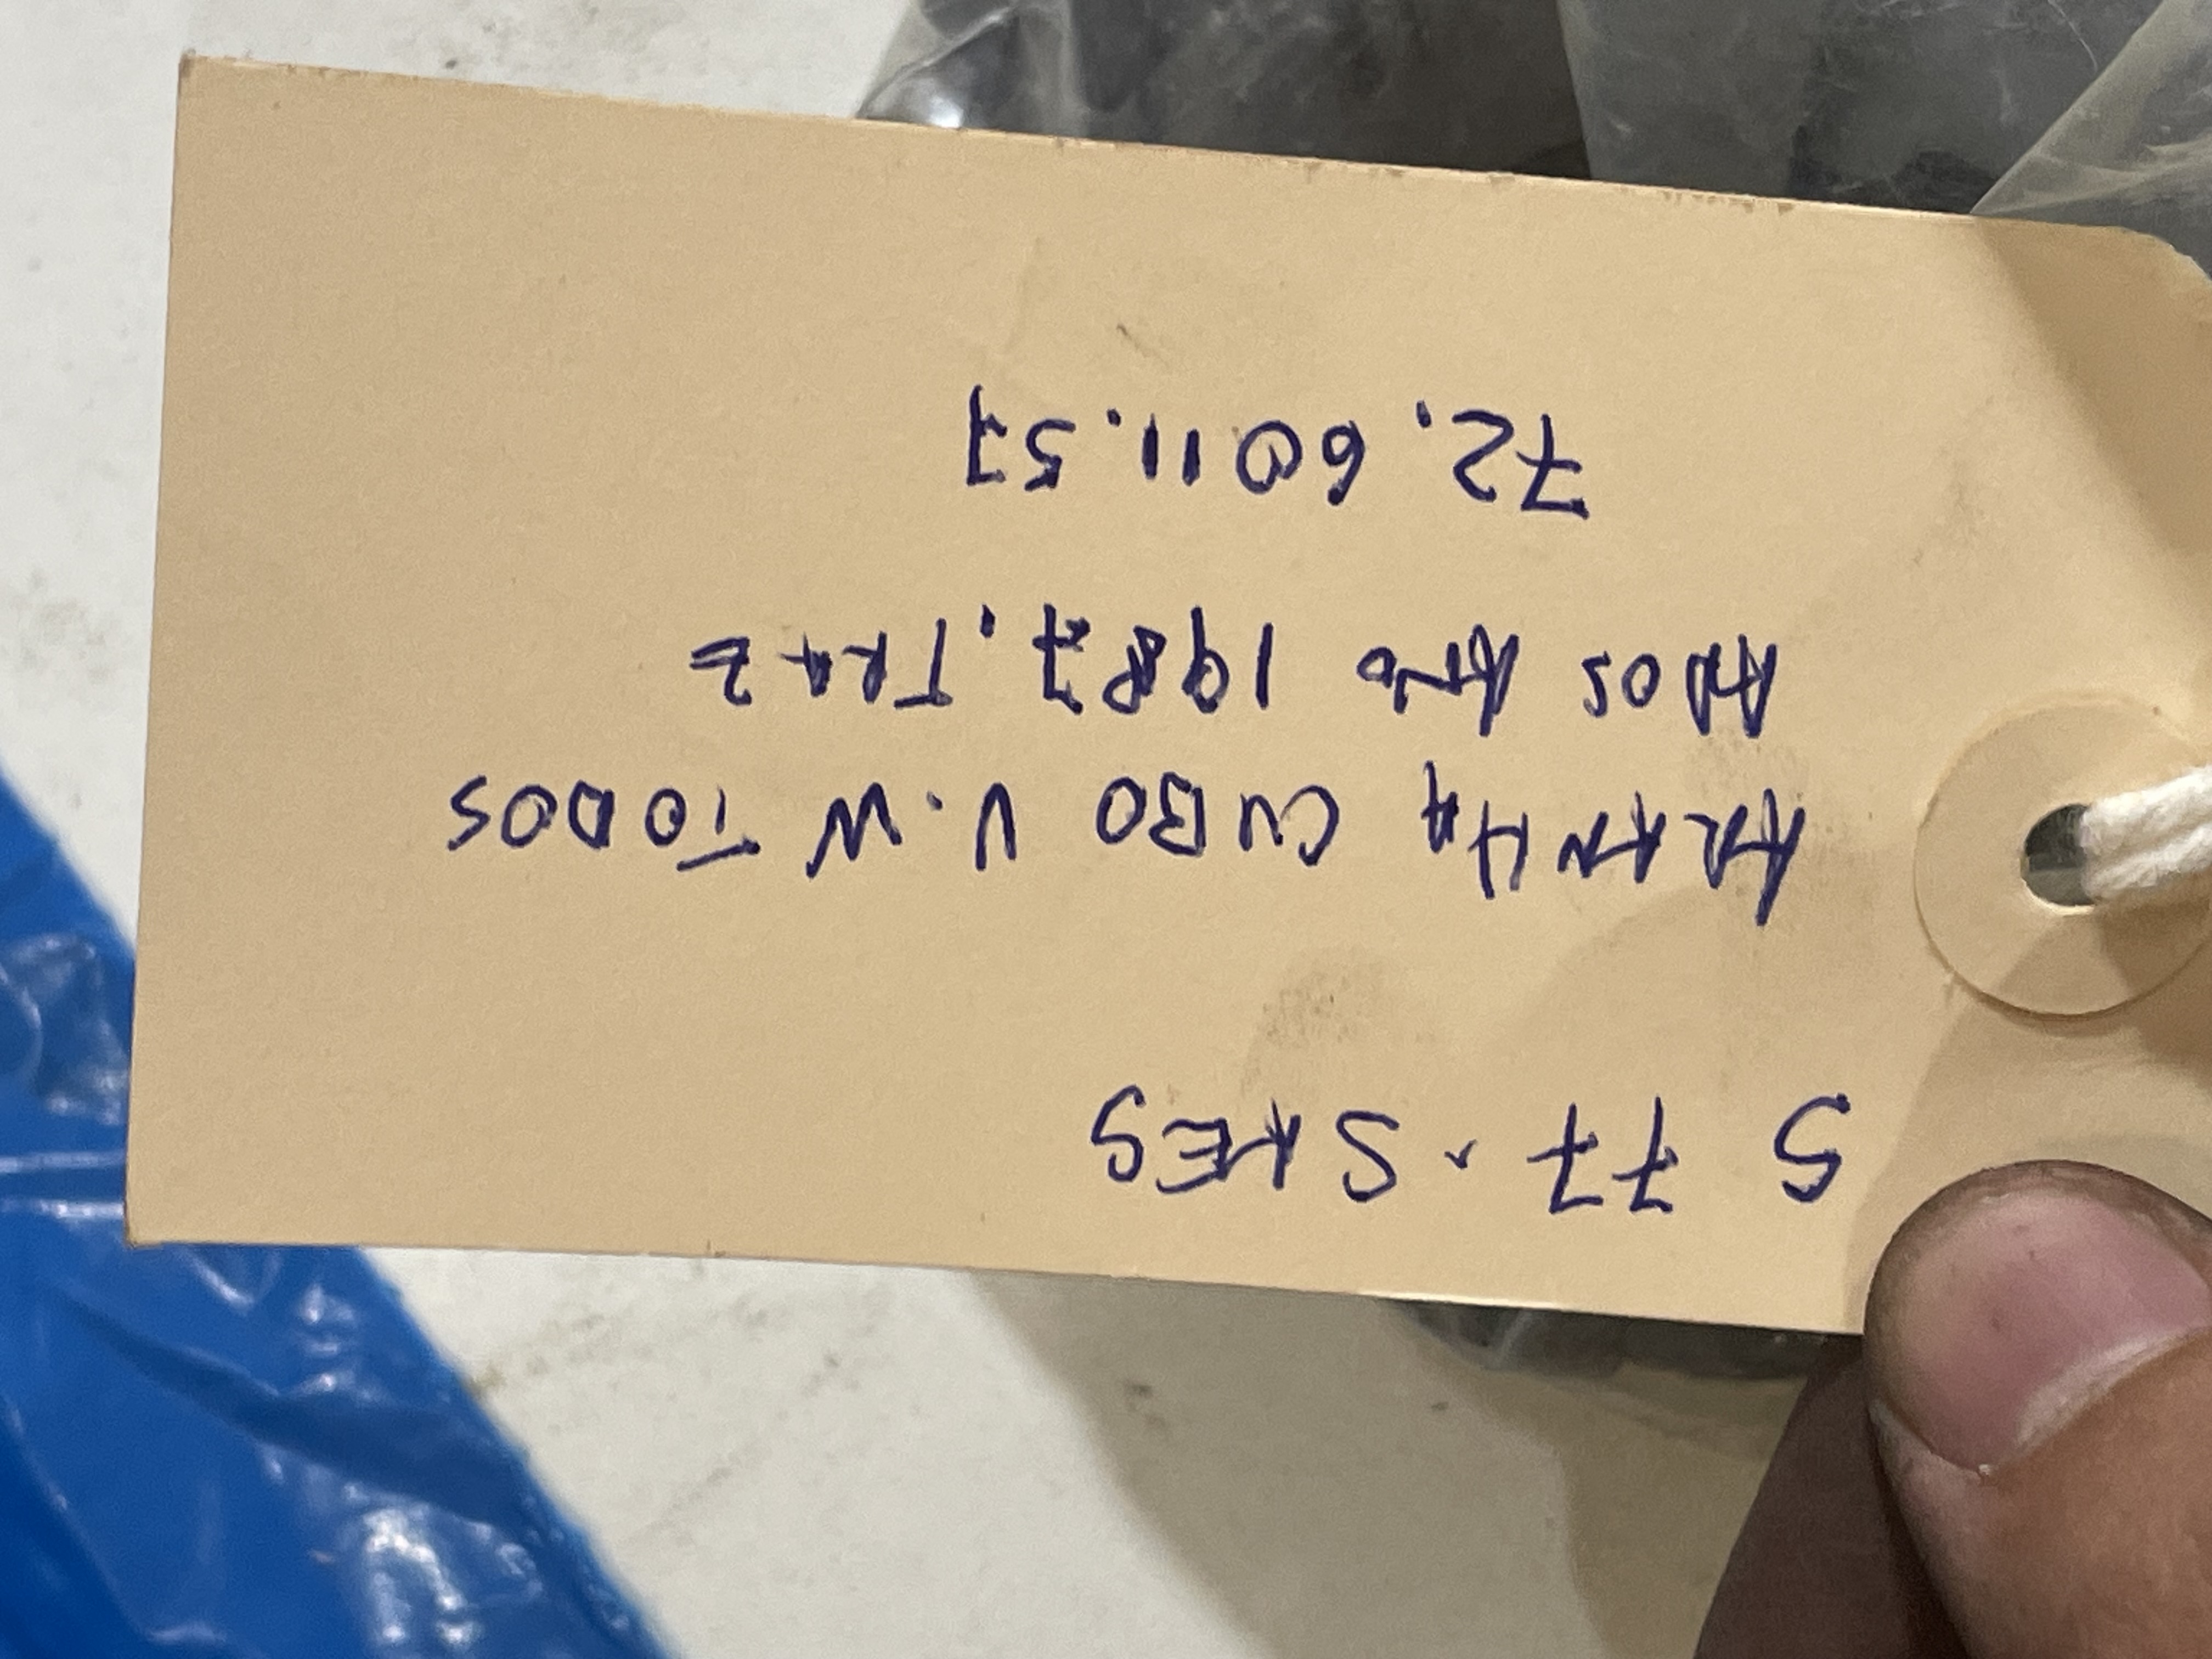 S 77. SKES
ARANHA CUBO V.W TODOS
APOS ANO 1987. TRAZ
72. 6011. 57